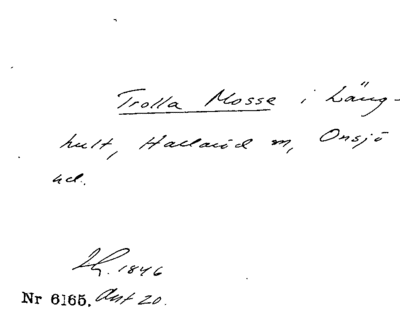 Trolla Mosse i Läng-
hult, Hallaröd m, Onsjö
hd.
1846
Nr 6165. Akt 20.